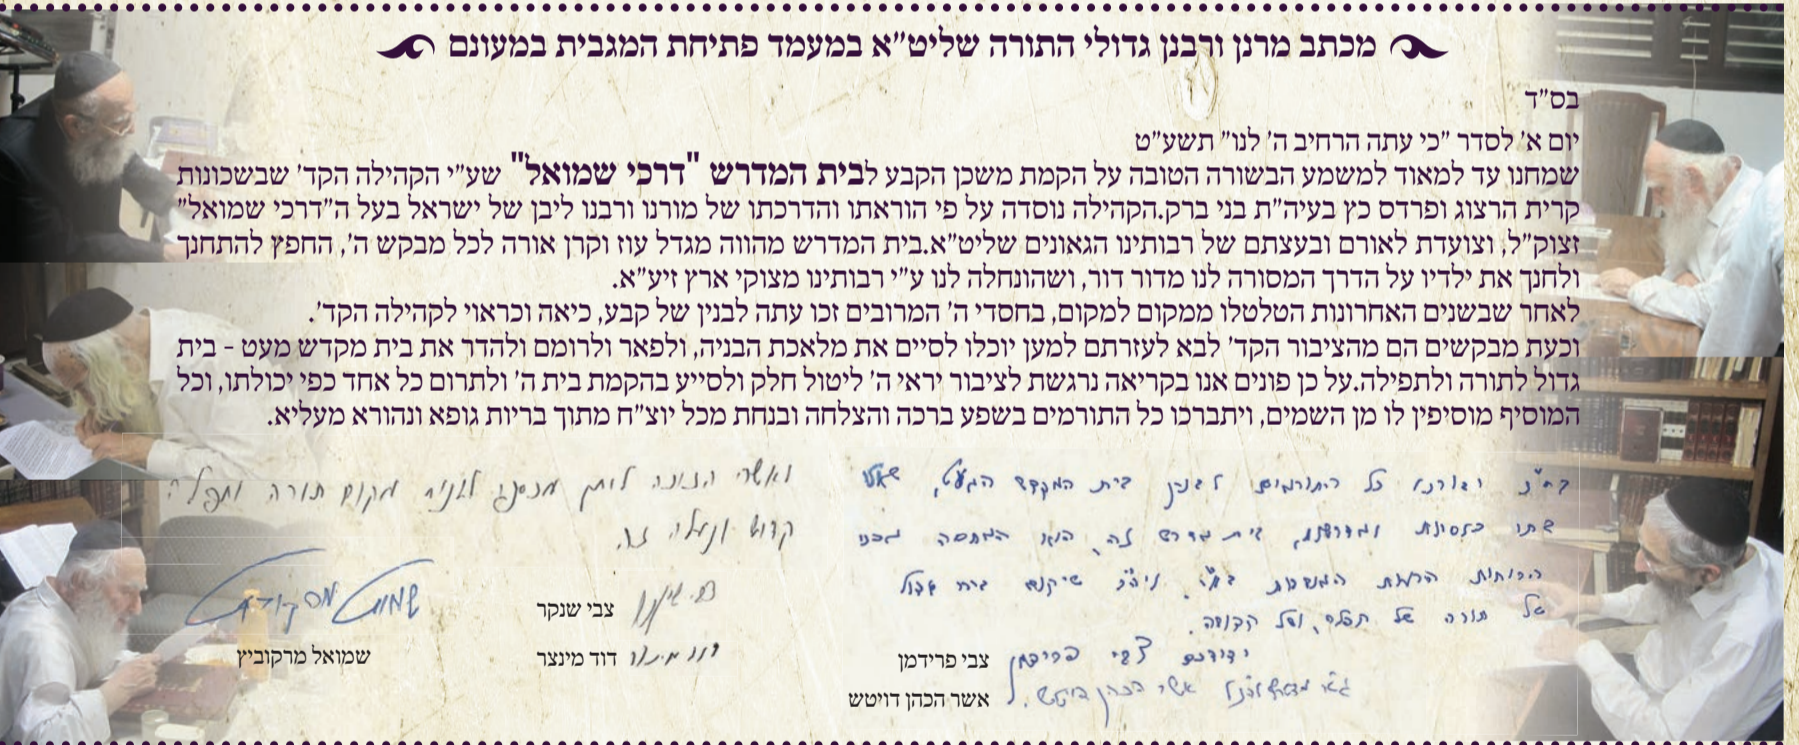 מכתב מרנן ורבנן גדולי התורה שליט״א במעמד פתיחת המגבית במעונם
בס״ד
יום א׳ לסדר ״כי עתה הרחיב ה׳ לנו״ תשע״ט
שמחנו עד למאוד למשמע הבשורה הטובה על הקמת משכן הקבע לבית המדרש "דרכי שמואל" שע״י הקהילה הקד׳ שבשכונות
קרית הרצוג ופרדס כץ בעיה״ת בני ברק.הקהילה נוסדה על פי הוראתו והדרכתו של מורנו ורבנו ליבן של ישראל בעל ה״דרכי שמואל״
זצוק״ל, וצועדת לאורם ובעצתם של רבותינו הגאונים שליט״א.בית המדרש מהווה מגדל עוז וקרן אורה לכל מבקש ה׳, החפץ להתחנך
ולחנך את ילדיו על הדרך המסורה לנו מדור דור, ושהונחלה לנו ע״י רבותינו מצוקי ארץ זיע״א.
לאחר שבשנים האחרונות הטלטלו ממקום למקום, בחסדי ה׳ המרובים זכו עתה לבנין של קבע, כיאה וכראוי לקהילה הקד׳.
וכעת מבקשים הם מהציבור הקד׳ לבא לעזרתם למען יוכלו לסיים את מלאכת הבניה, ולפאר ולרומם ולהדר את בית מקדש מעט - בית
גדול לתורה ולתפילה.על כן פונים אנו בקריאה נרגשת לציבור יראי ה׳ ליטול חלק ולסייע בהקמת בית ה׳ ולתרום כל אחד כפי יכולתו, וכל
המוסיף מוסיפין לו מן השמים, ויתברכו כל התורמים בשפע ברכה והצלחה ובנחת מכל יוצ״ח מתוך בריות גופא ונהורא מעליא.
כל התורמים לבנין בית המקדש המעט
בית מדרש זה הוא
של תורה של תפלה ושל
ידידכם צבי פרידמן
צבי פרידמן
אשר הכהן דויטש
אשר הכהן דויטש
ואשרי הזוכה ליתן מכספו לבנית מקום תורה ותפלה
קדוש ונעלה זה
צבי שנקר
דוד מינצר
דוד מינצר
שמואל מרקוביץ
שמואל מרקוביץ